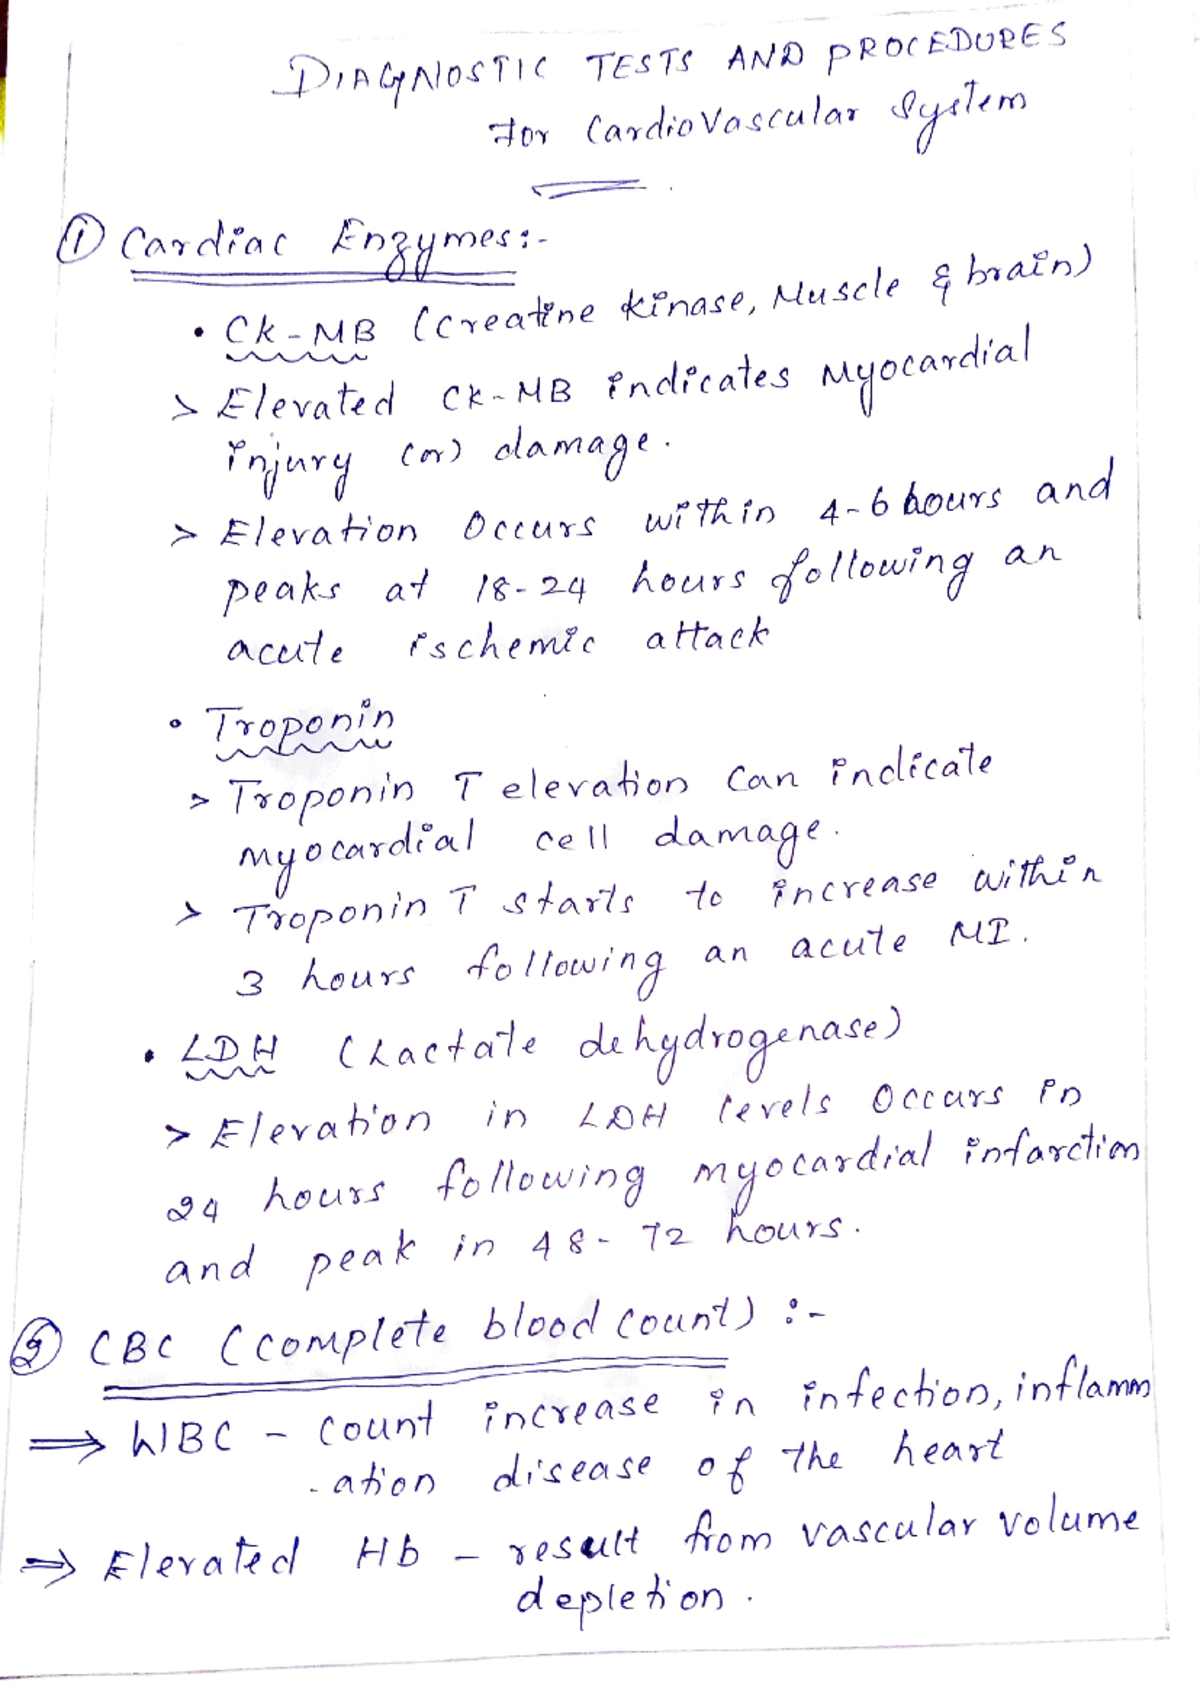 DIAGNOSTIC TESTS AND PROCEDURES
For CardioVascular System
① Cardiac Enzymes:-
• CK-MB (Creatine kinase, Muscle & brain)
> Elevated CK-MB indicates Myocardial
injury (or) damage.
> Elevation Occurs within 4-6 hours and
peaks at 18-24 hours following an
acute ischemic attack
• Troponin
> Troponin T elevation can indicate
myocardial cell damage.
> Troponin T starts to increase within
3 hours following an acute MI.
• LDH (Lactate dehydrogenase)
> Elevation in LDH levels occurs in
24 hours following myocardial infarction
and peak in 48-72 hours.
② CBC (complete blood count) :-
⇒ WBC - count increase in infection, inflamm
-ation disease of the heart
⇒ Elevated Hb - result from vascular volume
depletion.